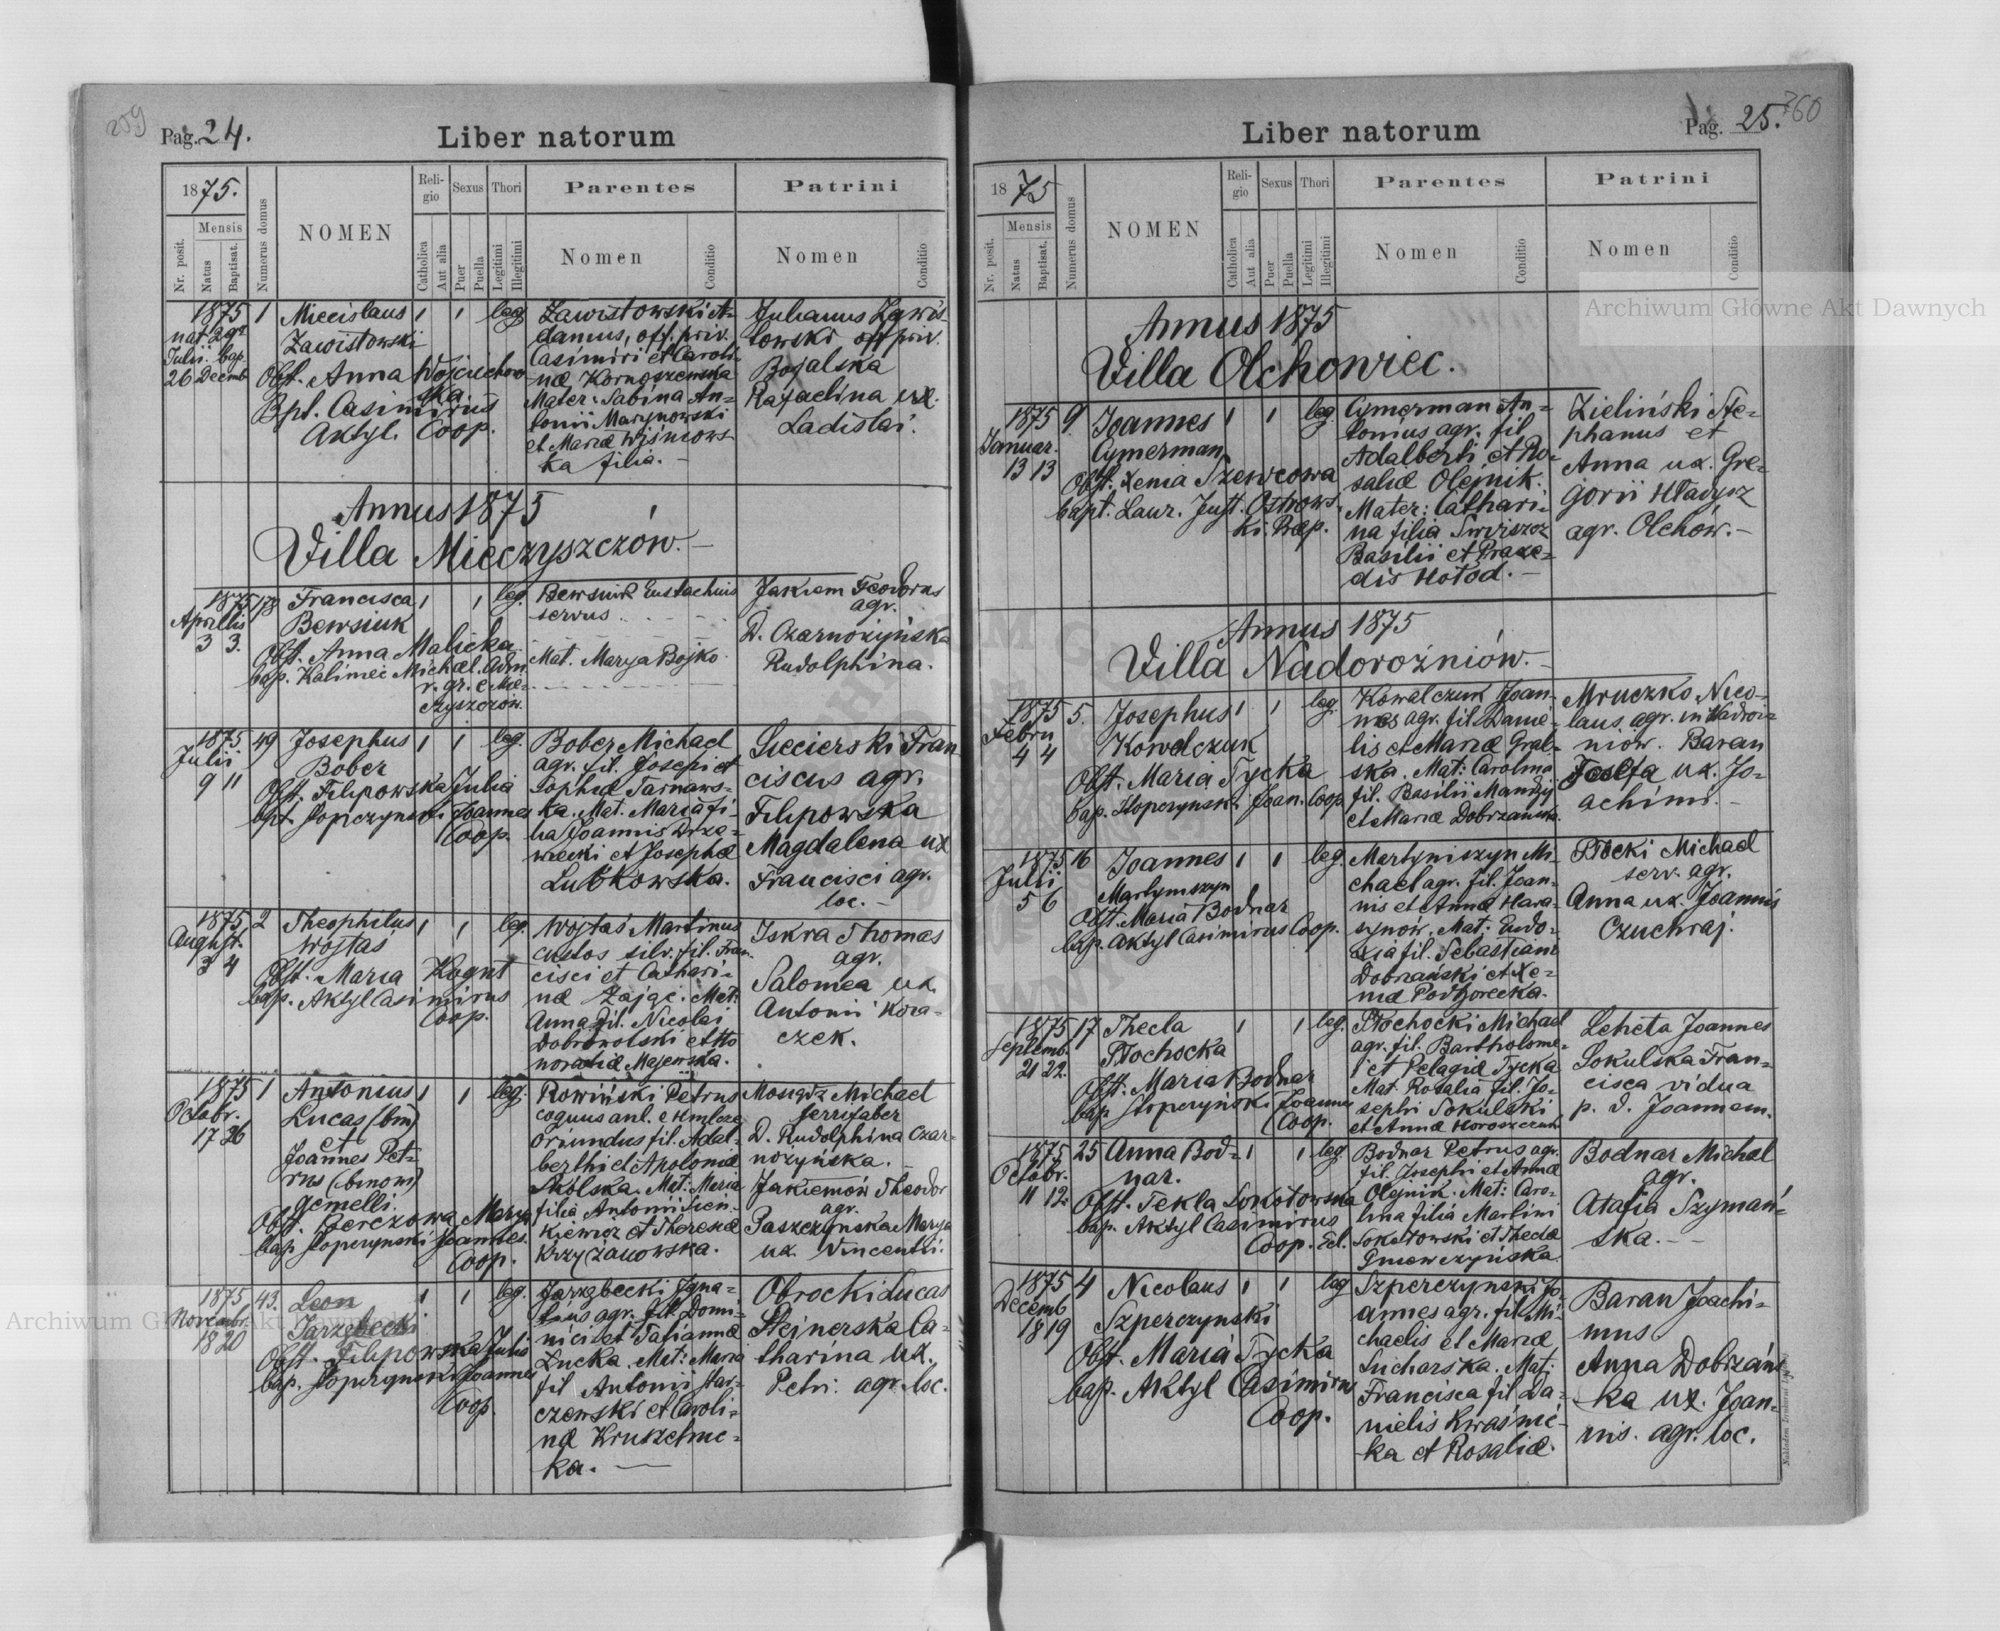 259
Pag. 24.
Liber natorum
1875.
Mensis
Nr. posit.
Natus
Baptisat.
Numerus domus
NOMEN
Reli-
gio
Catholica
Aut alia
Sexus
Puer
Puella
Thori
Legitimi
Illegitimi
Parentes
Nomen
Conditio
Patrini
Nomen
Conditio
1875
Julii. bap.
26 Decemb
1
Miecislaus
Zawistowski
Obst. Anna Wojciechow
ska
Bpt. Casimirus
Aktyl. Coop.
1 1 leg.
Zawistowski A-
damus, off. priv.
Casimiri et Caroli-
næ
Mater: Sabina An-
tonii Marynowski
et Mariæ Wiśniows-
ka filia.
Julianus Zawis
towski off priv.
Bogalska
Rafaelina ux.
Ladislai.
Annus 1875
Villa Mieczyszczów.
1875
Aprilis
3 3.
Francisca
Bewsiuk
Obst. Anna Malicka
bap. Kalimec Michael. Adm.
r. gr. e Mie-
czyszczów.
1 1 leg.
Bewsiuk Eustachius
servus
Mat. Marya Bojko
Jakiem Feodorus
agr.
D. Czarnożyńska
Rudolphina.
1875
Julii
9 11
49
Josephus
Bober
Obst. Filipowska Julia
bpt. Joannes
Coop.
1 1 leg.
Bober Michael
agr. fil. Josepi et
Sophiæ Tarnaws-
ka. Mat. Maria fi-
lia Joannis Drze-
wiecki et Josephæ
Lubkowska.
Siecierski Fran
ciscus agr.
Filipowska
Magdalena ux
Francisci agr.
loc.
1875
August.
3 4
2
Theophilus
Wojtaś
Obst. Maria Kogut
bap. Aktyl Casimirus
Coop.
1 1 leg.
Wojtaś Martinus
custos silv. fil. Fran-
cisci et Cathari-
næ Zając. Mat:
Anna fil. Nicolai
Dobrowolski et Ho
noratiæ Majewska.
Iskra Thomas
agr.
Salomea ux
Antonii Kora-
czek.
1875
Octobr.
17 26
1
Antonius
Lucas (bin)
et
Joannes Pet-
rus (binom)
gemelli.
Obst. Berczowa Marya
bap. Joannes
Coop.
1 1 leg.
Rowiński Petrus
oriundus fil. Adal-
berthi et Apoloniæ
Skolska. Mat: Maria
filia Antonii Sien-
kiewicz et Theresæ
Krzyżanowska.
Michael
ferrifaber
D. Rudolphina Czar-
nożyńska.
Jakiemów Theodor
agr.
Paszczyńska Marya
ux. Vincentii.
1875
Novembr.
18 20
43.
Leon
Jarzębecki
Obst. Filipowska Julia
bap. Joannes
Coop.
1 1 leg.
Jarzębecki Igna-
tius agr. fil. Domi-
nici et Tatiannæ
Zucka. Mat: Maria
fil Antonii
czewski et Caroli-
næ
ka.
Obrocki Lucas
Stejnerska Ca-
tharina ux.
Petri agr. loc.
260
Pag. 25.
Liber natorum
1875
Mensis
Nr. posit.
Natus
Baptisat.
Numerus domus
NOMEN
Reli-
gio
Catholica
Aut alia
Sexus
Puer
Puella
Thori
Legitimi
Illegitimi
Parentes
Nomen
Conditio
Patrini
Nomen
Conditio
Annus 1875
Villa Olchowiec.
1875
Januar.
13 13
9.
Joannes
Cymerman
Obst. Xenia Szewcowa
bapt. Laur. Just. Ostrows-
ki Præp.
1 1 leg.
Cymerman An-
tonius agr. fil
Adalberti et Ro-
saliæ Olejnik.
Mater: Cathari-
na filia
Basilii et Praxe-
dis Hołod.
Zieliński Ste-
phanus et
Anna ux. Gre-
gorii Hładysz
agr. Olchów.
Annus 1875
Villa Nadorożniów.
1875
Febru
4 4
5.
Josephus
Kowalczuk
Obst. Maria Tycka
bap. Joan. Coop
1 1 leg.
Kowalczuk Joan-
nes agr. fil. Danie-
lis et Mariæ Grab-
ska. Mat: Carolina
fil. Basilii Mandzij
et Mariæ Dobrzańska.
Mruczko Nico-
laus agr. in Nadroż-
niów. Baran
Josefa ux. Jo-
achimi.
1875
Julii
5 6
16
Joannes
Martyniszyn
Obst. Maria Bodnar
bap. Aktyl Casimirus Coop.
1 1 leg.
Martyniszyn Mi-
chael agr. fil. Joan-
nis et Annæ Hara-
synów. Mat: Eudo-
xia fil. Sebastiani
Dobrzański et Xe-
niæ Podhorecka.
Płocki Michael
serv. agr.
Anna ux. Joannis
Czuchraj.
1875
Septemb.
21 22.
17
Thecla
Płochocka
Obst. Maria Bodnar
bap Joannes
Coop.
1 1 leg.
Płochocki Michael
agr. fil. Bartholome-
i et Pelagiæ Tycka
Mat. Rosalia fil. Jo-
sephi Sokulski
et Annæ Horoszczuk
Leheta Joannes
Sokulska Fran-
cisca vidua
p. d. Joannem.
1875
Octobr.
11 12
25
Anna Bod-
nar.
Obst. Tekla Sokołowska
bap. Aktyl Casimirus
Coop. Ecl.
1 1 leg
Bodnar Petrus agr.
fil. Josephi et Annæ
Olejnik. Mat: Caro-
lina filia Martini
Sokołowski et Theclæ
Gniewczyńska
Bodnar Michael
agr.
Atafia Szymań-
ska.
1875
Decemb
18 19
4
Nicolaus
Szperczynski
Obst. Maria Tycka
bap. Aktyl Casimirus
Coop.
1 1 leg
Szperczynski Jo-
annes agr. fil. Mi-
chaelis et Mariæ
Sucharska. Mat:
Francisca fil Da-
nielis Kwaśnic-
ka et Rosaliæ.
Baran Joachi-
mus
Anna Dobrzańs
ka ux. Joan-
nis. agr. loc.
Archiwum Główne Akt Dawnych
Archiwum Główne Akt Dawnych